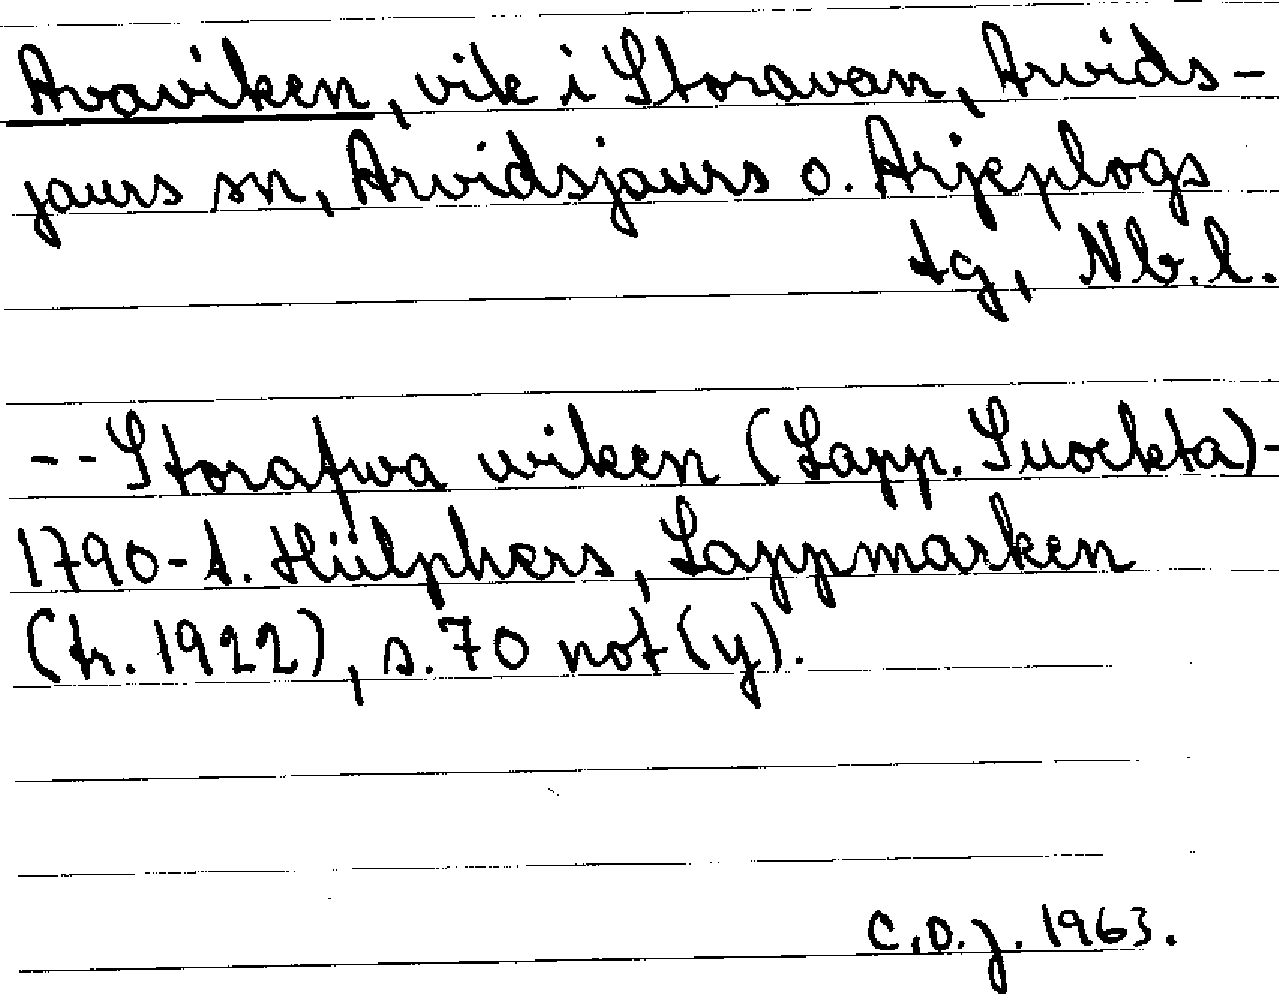 Avaviken, vik i Storavan, Arvids-
jaurs sn, Arvidsjaurs o. Arjeplogs
tg, Nb.l.
--Storafwa wiken (Lapp. Suockta)-
1790-t. Hülphers, Lappmarken
(tr. 1922), s. 70 not (y).
C.O.J. 1963.